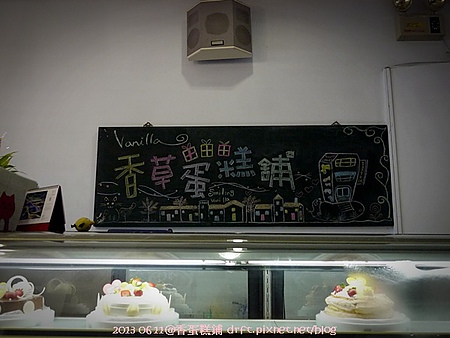 Vanilla
香草蛋糕舖
2013.06.11@香蛋糕舖 drft.pixnet.net/blog